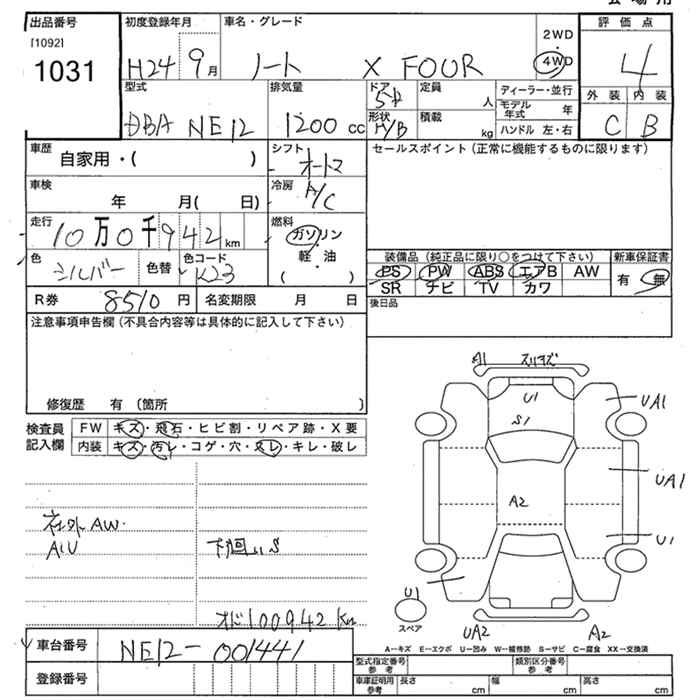 会場用
出品番号
[1092]
1031
初度登録年月
H24 9月
車名・グレード
ノート X FOUR
2WD
4WD
評価点
4
外装 内装
C B
型式
DBA NE12
排気量
1200 cc
ドア
5D
形状
H/B
定員
人
積載
kg
ディーラー・並行
モデル年式 年
ハンドル 左・右
車歴
自家用・( )
シフト
オートマ
セールスポイント(正常に機能するものに限ります)
車検
年 月( 日)
冷房
A/C
走行
10万0千942km
燃料
ガソリン
軽・油
( )
色
シルバー
色替
色コード
K23
装備品(純正品に限り○をつけて下さい)
新車保証書
PS PW ABS エアB AW
有 無
SR ナビ TV カワ
R券 8510円
名変期限 月 日
後日品
注意事項申告欄(不具合内容等は具体的に記入して下さい)
修復歴 有(箇所 )
検査員
記入欄
FW キズ・飛石・ヒビ割・リペア跡・X要
内装 キズ・汚レ・コゲ・穴・スレ・キレ・破レ
社外AW
A1U
下廻りS
オド100942Km
A1 スリキズ
U1
S1
UA1
A2
UA1
U1
U1
スペア
UA2
A2
A―キズ E―エクボ U―凹み W―補修跡 S―サビ C―腐食 XX―交換済
車台番号
NE12-001441
登録番号
型式指定番号
参考
類別区分番号
参考
車庫証明用
参考
長さ cm 幅 cm 高さ cm